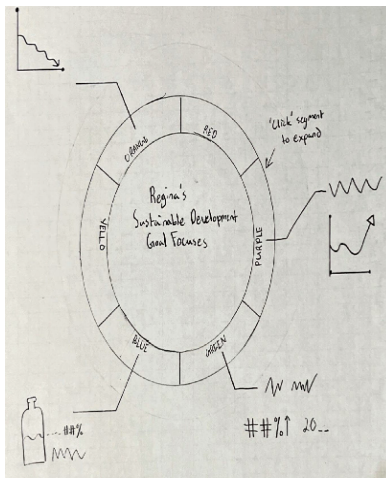 "Click" segment
to expand
ORANGE
RED
Regina's
Sustainable Development
Goal Focuses
YELLO
PURPLE
BLUE
GREEN
##%
##%↑ 20__